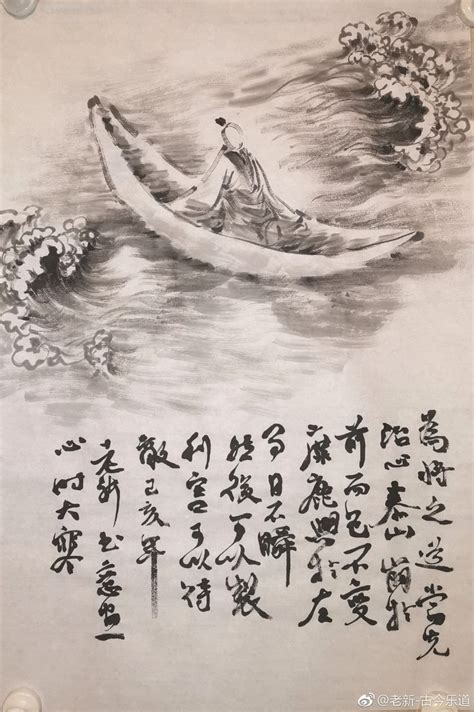 為將之道當先
治心泰山崩於
前而色不變
麋鹿興於左
而目不瞬
然後可以製
利害可以待
敵己亥年
老新书
心时大寒
@老新-古今乐道